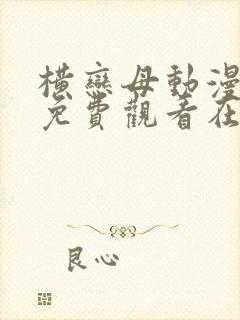 橫戀母動漫
免費觀看在
良心